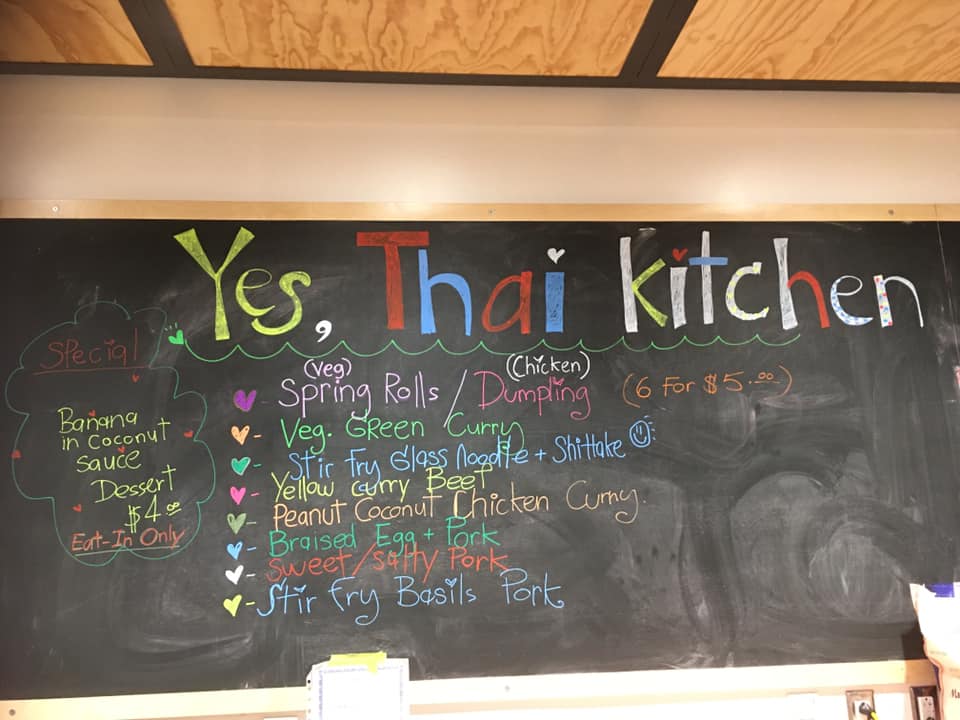 Yes, Thai kitchen
Special
Banana
in Coconut
sauce
Dessert
$4.00
Eat-In Only
(Veg) (Chicken)
Spring Rolls / Dumpling (6 For $5.00)
- Veg. GReen Curry
- Stir Fry Glass Noodle + Shittake
- Yellow curry Beef
- Peanut Coconut Chicken Curry.
- Braised Egg + Pork
- Sweet/salty Pork
- Stir Fry Basils Pork